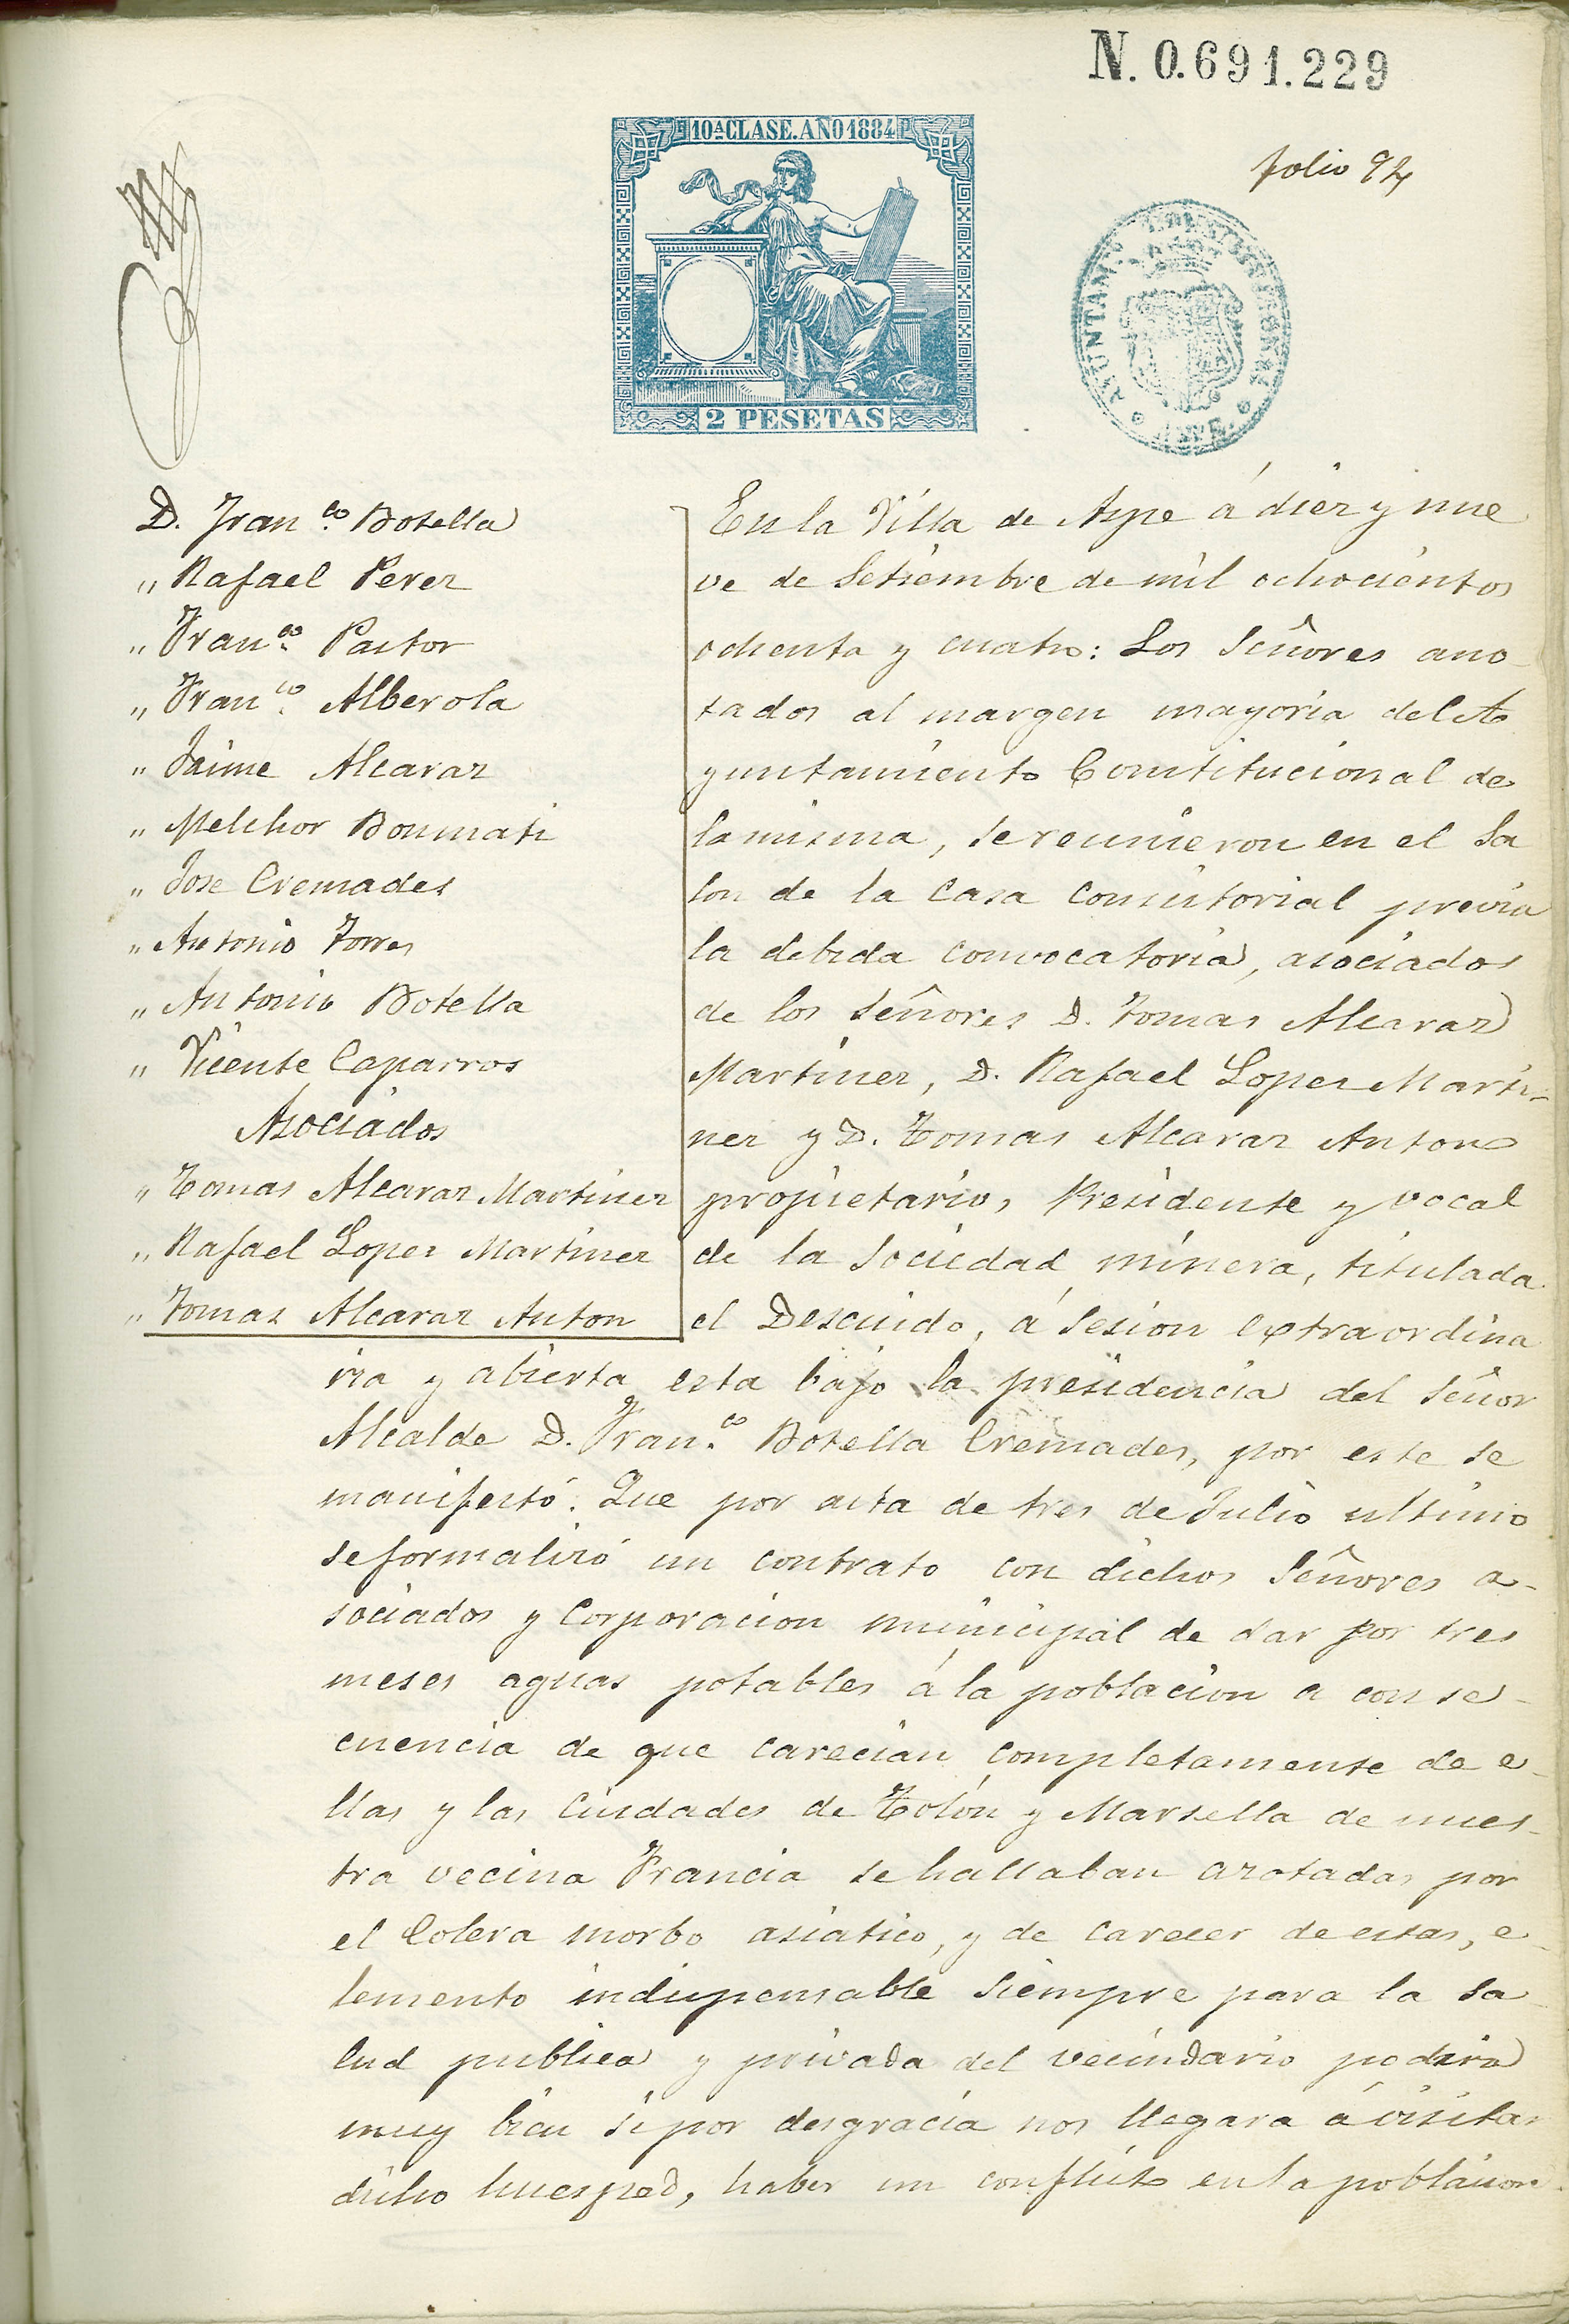 N. 0.691.229
10A CLASE. AÑO 1884
folio 94
AYUNTAMTO CONSTITUCIONAL
ASPE
2 PESETAS
D. Franco. Botella
" Rafael Perez
" Franco. Pastor
" Franco. Alberola
" Jaime Alcaraz
" Melchor Bonmati
" Jose Cremades
" Antonio Torres
" Antonio Botella
" Vicente Caparros
Asociados
" Tomas Alcaraz Martinez
" Rafael Lopez Martinez
" Tomas Alcaraz Anton
En la Villa de Aspe á diez y nue
ve de Setiembre de mil ochocientos
ochenta y cuatro: Los Señores ano
tados al margen mayoria del A
yuntamiento Constitucional de
la misma, se reunieron en el Sa
lon de la Casa Consistorial previa
la debida convocatoria, asociados
de los Señores D. Tomas Alcaraz
Martinez, D. Rafael Lopez Marti-
nez y D. Tomas Alcaraz Anton
propietario, Presidente y vocal
de la Sociedad minera, titulada
el Descuido, á Sesion extraordina
ria y abierta esta bajo la presidencia del Señor
Alcalde D. Franco. Botella Cremades, por este se
manifestó: Que por acta de tres de Julio ultimo
se formalizó un contrato con dichos Señores a-
sociados y Corporacion municipal de dar por tres
meses aguas potables á la poblacion a conse-
cuencia de que carecian completamente de e-
llas y las Ciudades de Tolón y Marsella de nues-
tra vecina Francia se hallaban azotadas por
el Colera morbo asiatico, y de carecer de estas, e-
lemento indispensable siempre para la sa-
lud publica y privada del vecindario podria
muy bien si por desgracia nos llegara á visitar
dicho huesped, haber un conflicto en la poblacion.